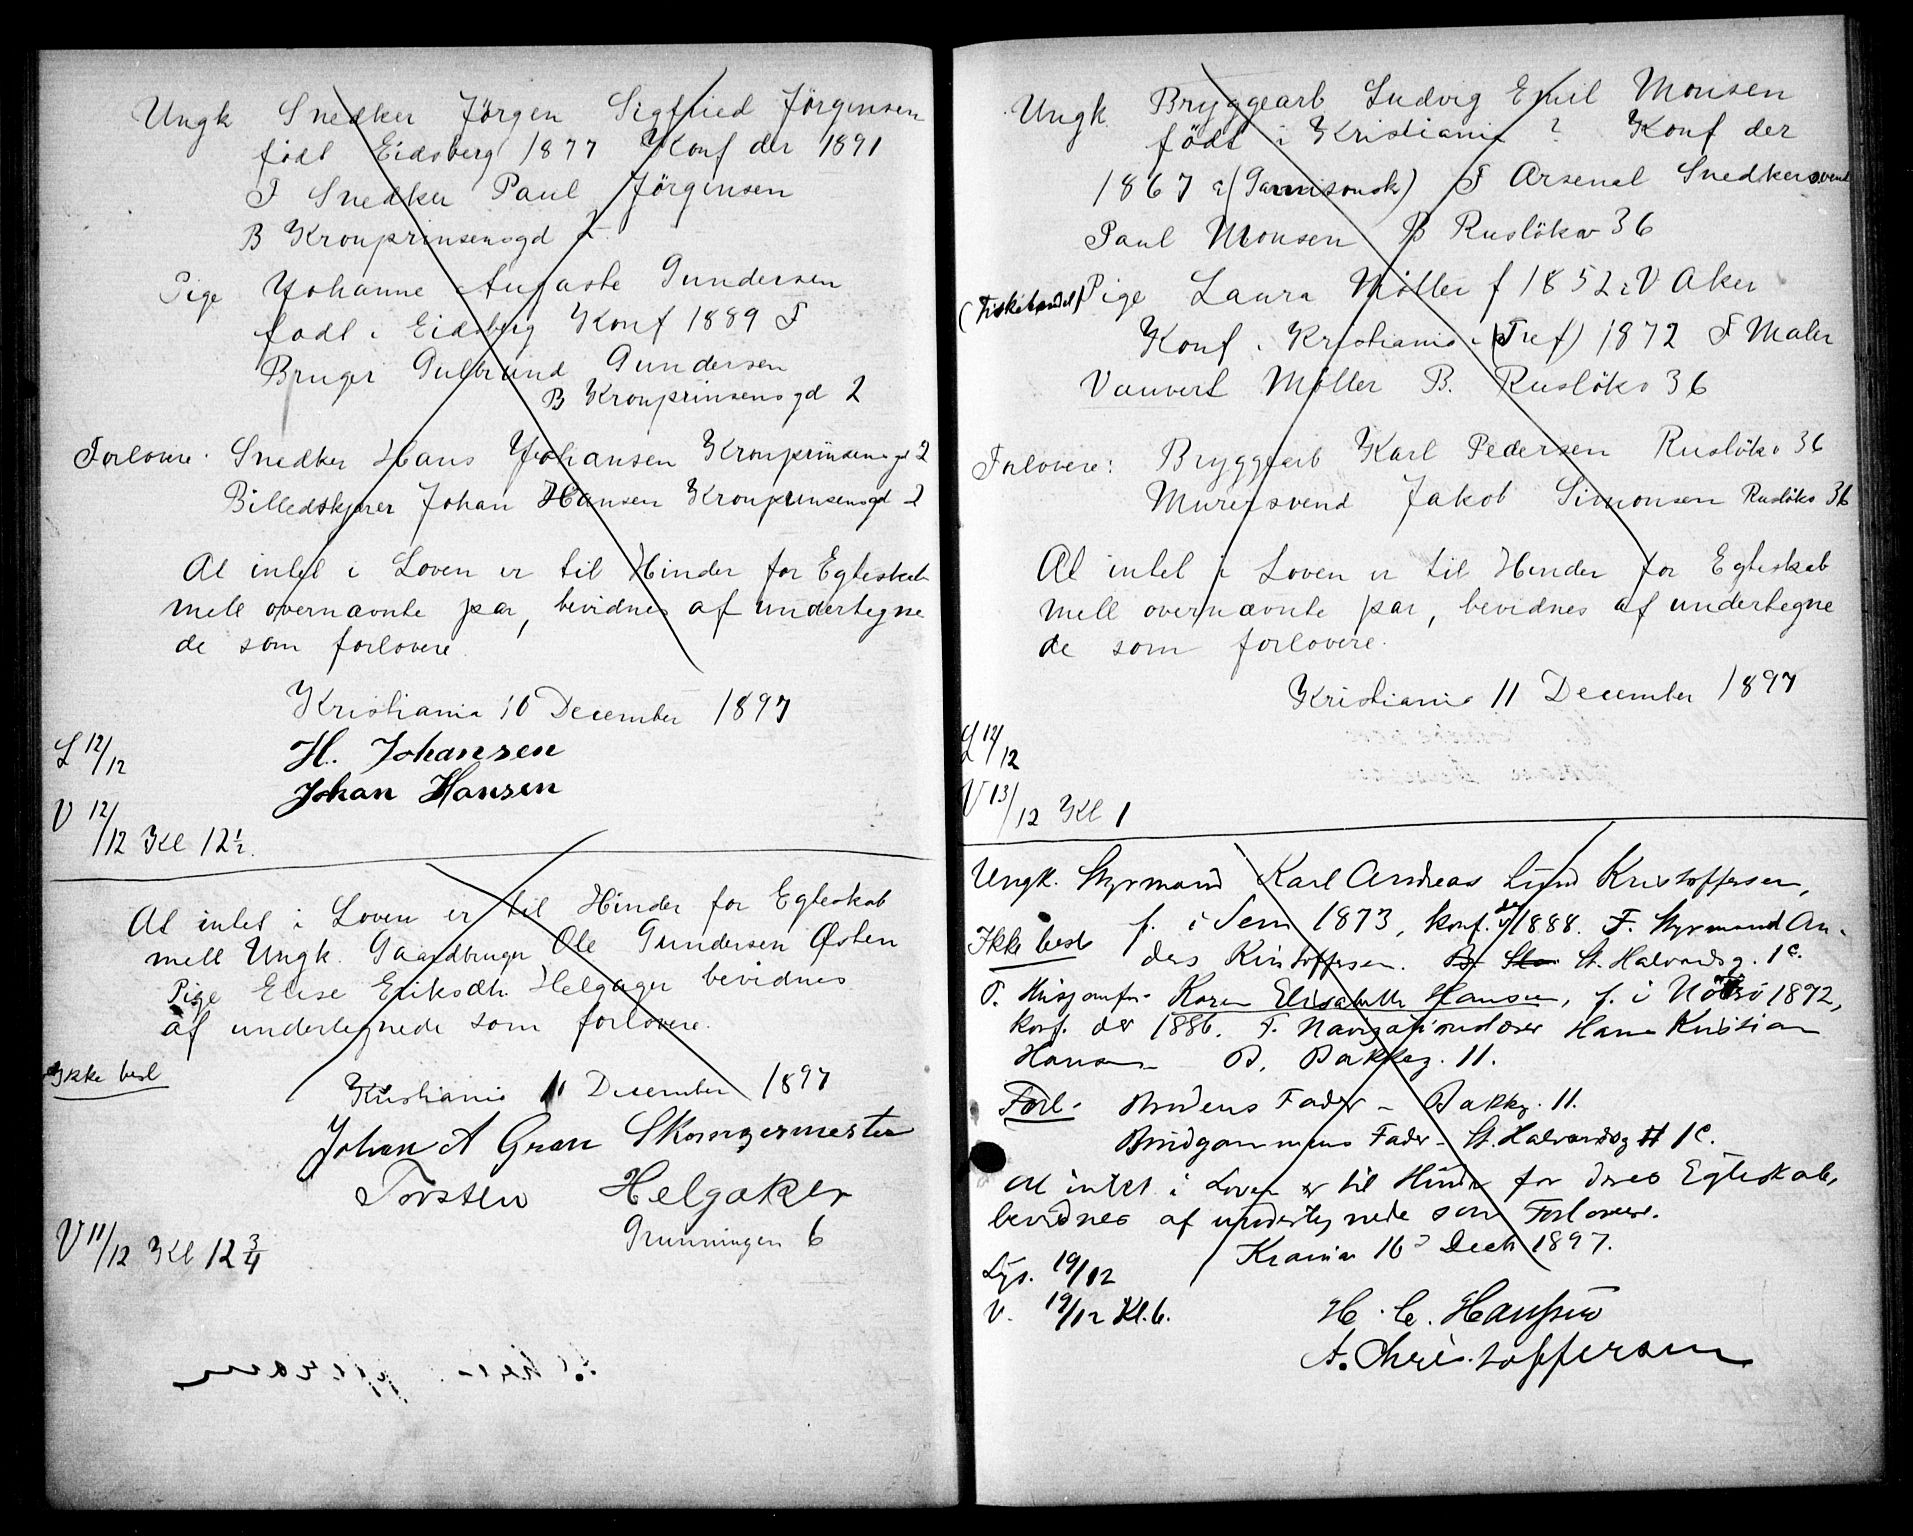 Ungk Snedker Jörgen Sigfried Jörgensen
födt Eidsberg 1877 Konf der 1891
F Snedker Paul Jörgensen
B Kronprinsensgd 2
Pige Johanne Auguste Gundersen
födt i Eidsberg Konf 1889 F
Bruger Gulbrand Gundersen
B Kronprinsensgd 2
Forlovere. Snedker Hans Johansen Kronprinsensgd 2
Billedskjærer Johan Hansen Kronprinsensgd 2
At intet i Loven er til Hinder for Egteskab
mell overnævnte par, bevidnes af undertegne
de som forlovere.
Kristiania 10 December 1897
L 12/12
H. Johansen
Johan Hansen
V 12/12 Kl 12½.
At intet i Loven er til Hinder for Egteskab
mell Ungk. Gaardbruger Ole Gundersen Østen
Pige Elise Eriksdtr. Helgager bevidnes
af undertegnede som forlovere.
Ikke best
Kristiania 11 December 1897
Johan A Gran Skomagermester
Torsten Helgaker
Grunningen 6
V 11/12 Kl 12¾
Ungk Bryggearb Ludvig Emil Monsen
födt i Kristiania ? Konf der
1867 (Garnisonsk) F Arsenal Snedkersvend
Paul Monsen BRuslökv 36
(Fiskehandel) Pige Laura Möller f 1852 i V Aker
Konf i Kristiania i (Tref) 1872 F Maler
Vauvert Möller B. Ruslökv 36
Forlovere: Bryggearb Karl Pedersen Ruslökv 36
Murersvend Jakob Simonsen Ruslökv 36
At intet i Loven er til Hinder for Egteskab
mell overnævnte par, bevidnes af undertegne
de som forlovere.
Kristiania 11 December 1897
L 12/12
V 13/12 Kl 1
Ungk. Styrmand Karl Andreas Lund Kristoffersen,
Ikke best f. i Sem 1873, konf. der 1888. F. Styrmand An-
ders Kristoffersen. B. St. Halvardsg. 1c.
P. Husjomfr. Karen Elisabeth Hansen, f. i Nötterö 1872,
konf. der 1886. F. Navigationslærer Hans Kristian
Hansen B. Bakkeg. 11.
Forl. Brudens Fader - Bakkg. 11.
Brudgommens Fader - St. Halvardsg 1c.
At intet i Loven er til Hinder for deres Egteskab,
bevidnes af undertegnede som Forlovere.
Krania 16 Decbr 1897.
Lys. 19/12
V. 19/12 Kl. 6.
H. C. Hanssen
A. Christoffersen